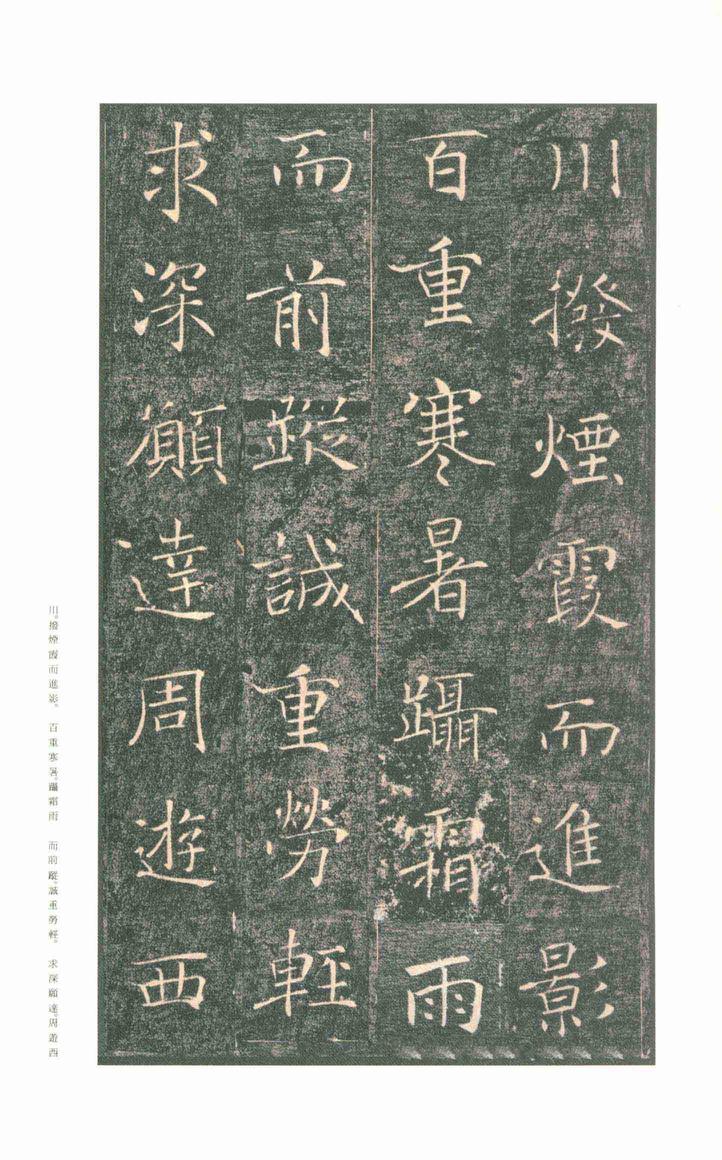 川撥煙霞而進影
百重寒暑躡霜雨
而前蹤誠重勞輕
求深願達周遊西
川。撥煙霞而進影。 百重寒暑。躡霜雨 而前蹤。誠重勞輕。 求深願達。周遊西